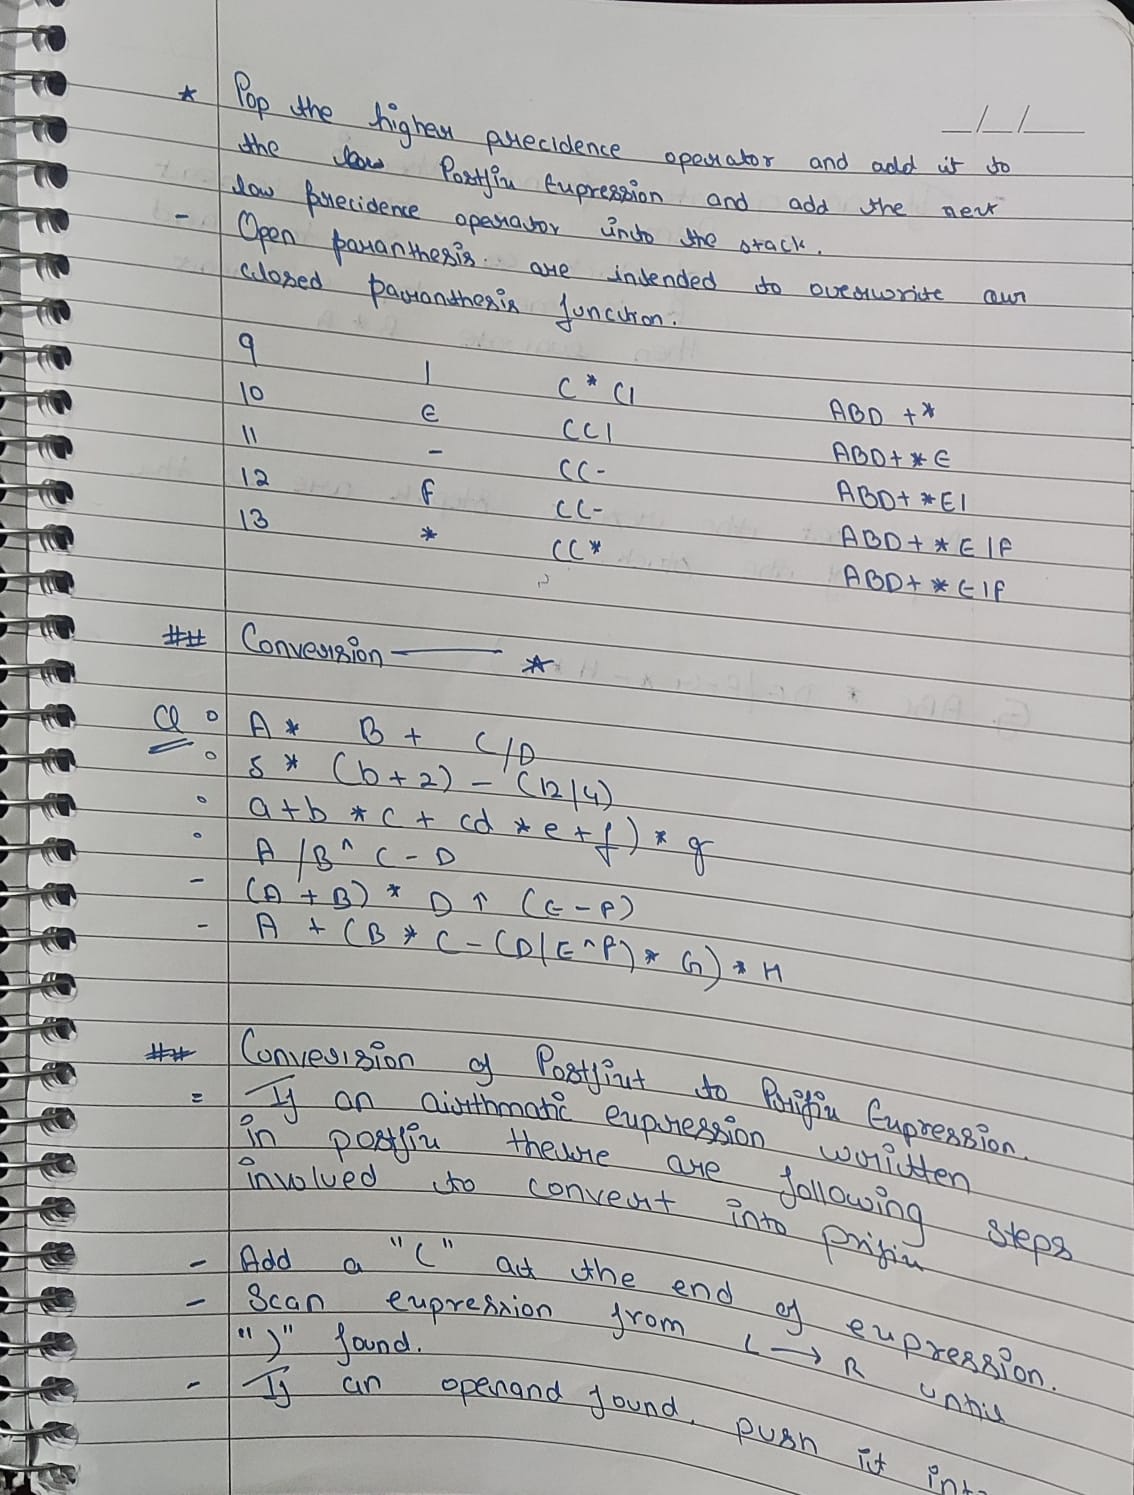 * Pop the higher precidence operator and add it to
the Postfix Expression and add the next
low precidence operator into the stack.
- Open paranthesis are intended to overwrite our
closed paranthesis function.
9 / (*(/ ABD +*
10 E ((/ ABD+*E
11 - ((- ABD+*E/
12 F ((- ABD+*E/F
13 * ((* ABD+*E/F
## Conversion — *
Q ° A * B + C/D
° 5 * (b+2) - (12/4)
° a+b *c + (d *e+f) * g
° A /B ^ C - D
- (A + B) * D ↑ (E - F)
- A + (B * C - (D/E^F) * G) * H
## Conversion of Postfixt to Prifix Expression.
= If an airthmatic expression written
in postfix there are following steps
involved to convert into prifix
- Add a "(" at the end of expression.
- Scan expression from L → R until
")" found.
- If an operand found, push it